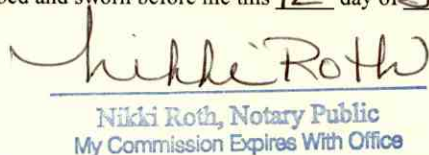 bed and sworn before me this 12 day of
Nikki Roth
Nikki Roth, Notary Public
My Commission Expires With Office